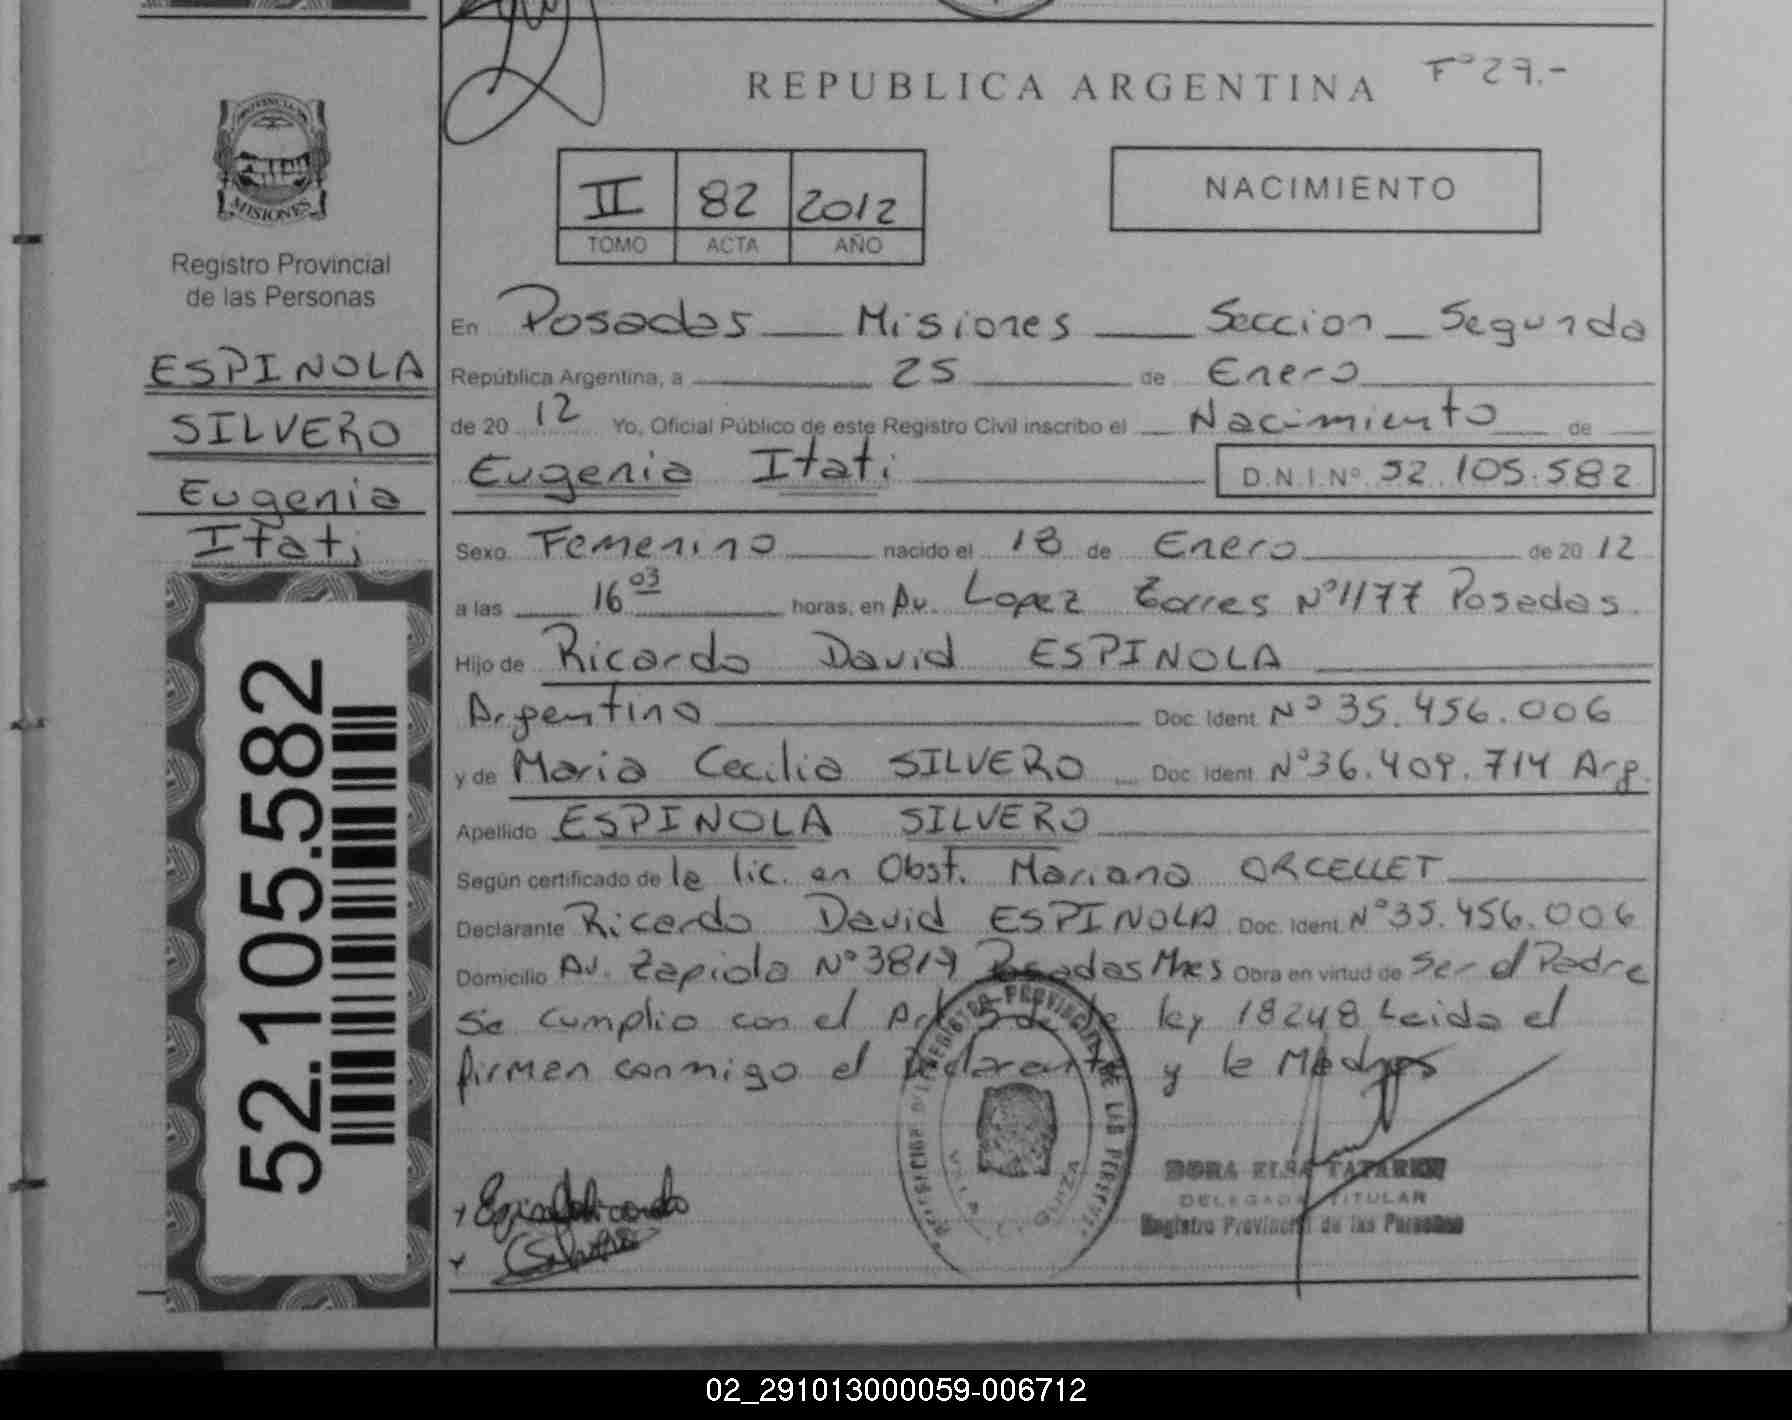 REPUBLICA ARGENTINA
Fº 29.-
II 82 2012
TOMO ACTA AÑO
NACIMIENTO
PROVINCIA DE
MISIONES
Registro Provincial
de las Personas
ESPINOLA
SILVERO
Eugenia
Itati
52.105.582
En Posadas Misiones Seccion Segunda
República Argentina, a 25 de Enero
de 20 12 Yo, Oficial Público de este Registro Civil inscribo el Nacimiento de
Eugenia Itati D.N.I.Nº 52.105.582
Sexo Femenino nacido el 18 de Enero de 20 12
a las 16 03 horas, en Av. Lopez Torres Nº 1177 Posadas.
Hijo de Ricardo David ESPINOLA
Argentino Doc. Ident. Nº 35.456.006
y de Maria Cecilia SILVERO Doc. Ident. Nº 36.409.714 Arg.
Apellido ESPINOLA SILVERO
Según certificado de la lic. en Obst. Mariana ORCELLET
Declarante Ricardo David ESPINOLA Doc. Ident. Nº 35.456.006
Domicilio Av. Zapiola Nº 3819 Posadas Mnes Obra en virtud de Ser el Padre
Se cumplio con el Art 5 de la ley 18248 Leida el
firman conmigo el Declarante y la Madre
REGISTRO PROVINCIAL DE LAS PERSONAS
VILLA
DORA ELSA
DELEGADA TITULAR
Registro Provincial de las Personas
02_291013000059-006712